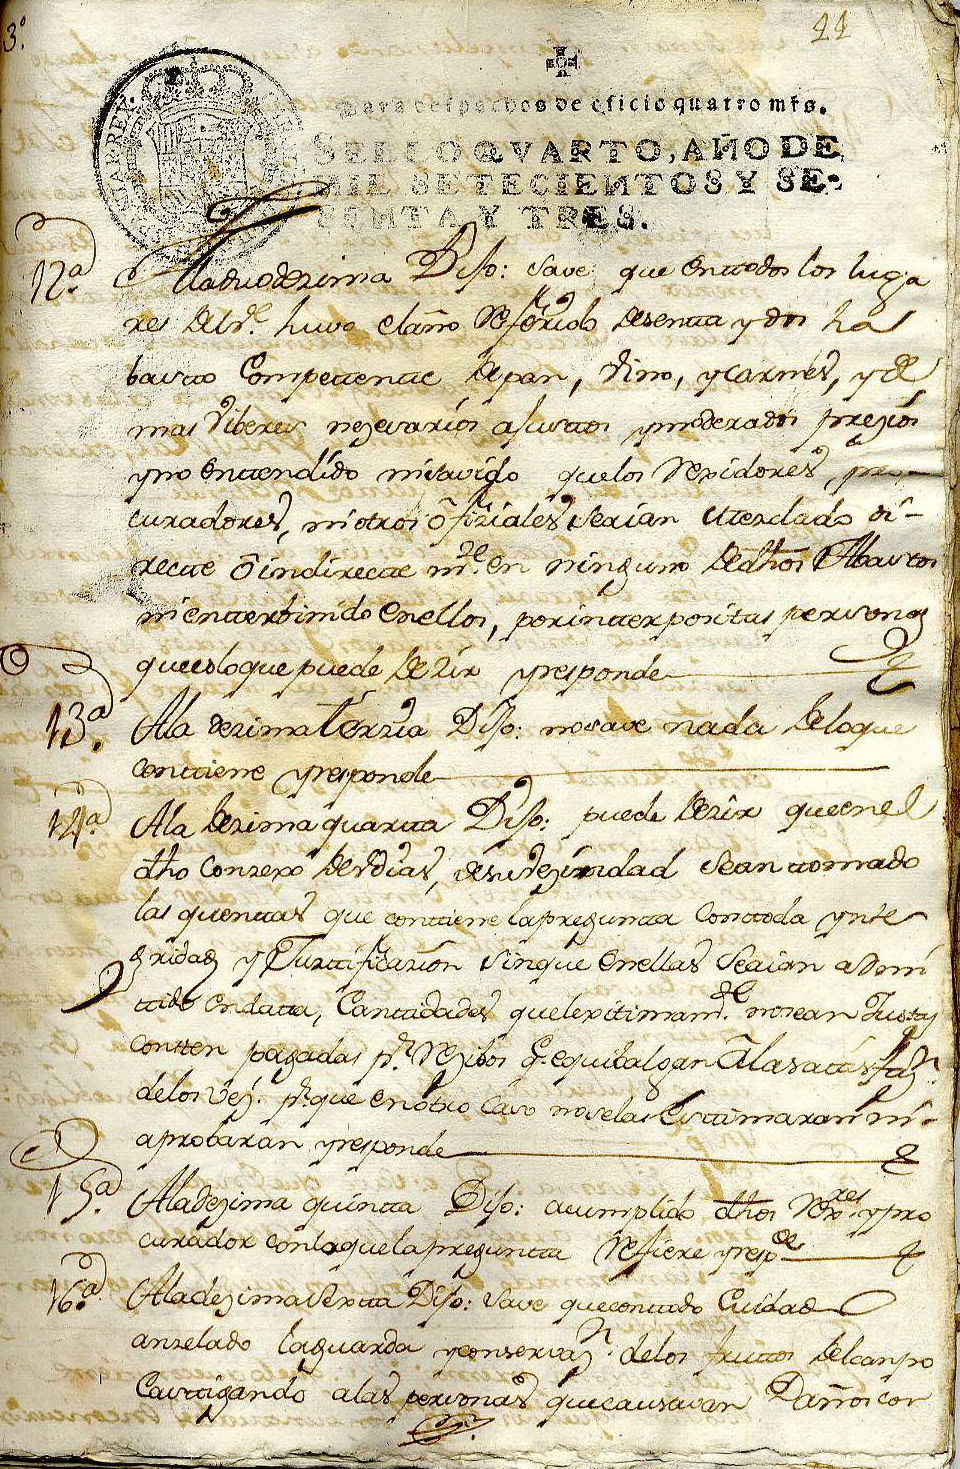 3.º
11
Para despachos de oficio quatro mrs.
SELLO QVARTO, AÑO DE
MIL SETECIENTOS Y SE-
SENTA Y TRES.
12ª A la duodezima Dijo: save que en ttodos los luga
res huvo el año Referido desentta y dos ha
bastto Compettentte de pan, vino, y carnes, y de
mas viberes nezesarios a justtos y moderados prezios
y no enttendido ni savido que los Rexidores, pro
curadores, ni otros ofiziales seaian Mezclado di-
rectte ô indirectte mte. en ninguno de dhos Abasttos
ni entterbinido en ellos, por intterpositas personas
que es lo que puede dezir y responde
13ª A la dezima terzia Dijo: no save nada de lo que
conttiene y responde
14ª A la dezima quartta Dijo: puede dezir que en el
dho conzexo de su vezindad sean ttomado
las quenttas que conttiene la preguntta con ttoda ynte
gridad y Justtificazion sin que en ellas seaian admi
ttido en datta, Canttidades que lexitimamte. no sean Justas
constten pagadas pr. Rezibos q. equibalgan â la sattisfazn.
de los Vez. pr. que en otro caso no se las esttimaran ni-
aprobaran y responde
15ª A la dezima quintta Dijo: a cumplido dhos Rexres. y pro
curador con lo que la preguntta Refiere y respde
16ª A la dezima sextta Dijo: save que con ttodo Cuidado
an zelado la guarda y conservazn. de los fruttos del canpo
Casttigando a las personas que causavan Daños con